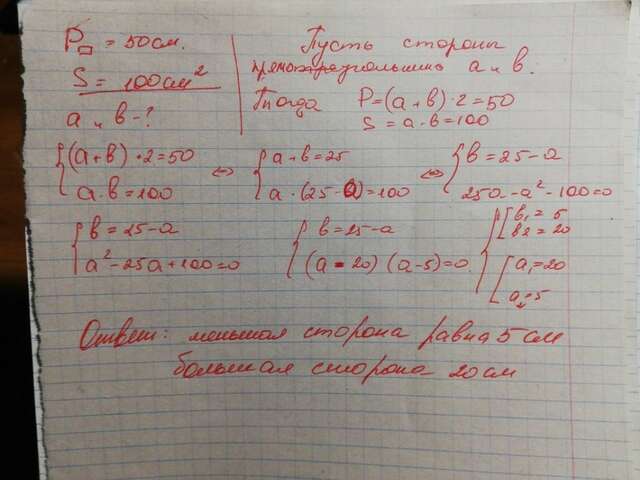 P▭ = 50см.
S = 100см²
a и b - ?
Пусть стороны
прямоугольника a и b.
Тогда P=(a+b)·2=50
S = a·b=100
{(a+b)·2=50 ⇔ {a+b=25 ⇔ {b=25-a
a·b=100 a·(25-a)=100 25a-a²-100=0
{b=25-a {b=25-a {[b₁=5
b₂=20
a²-25a+100=0 (a-20)(a-5)=0 [a₁=20
a₂=5
Ответ: меньшая сторона равна 5 см
большая сторона 20 см